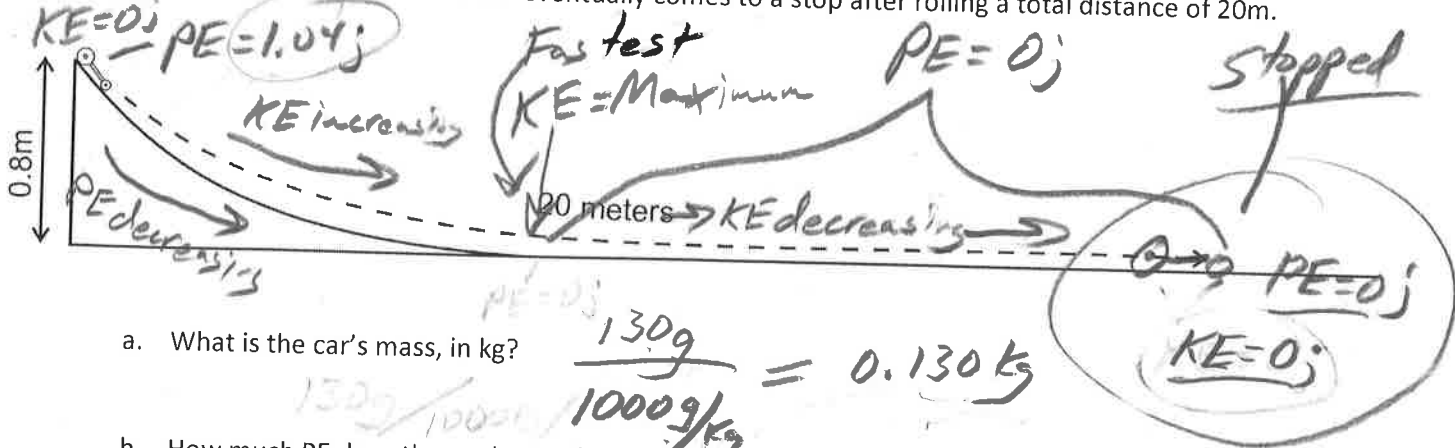 eventually comes to a stop after rolling a total distance of 20m.
KE=0j
PE=1.04j
Fastest
KE=Maximum
PE=0j
stopped
KE increasing
0.8m
PE decreasing
20 meters
KE decreasing
PE=0j
KE=0j
PE=0j
a. What is the car's mass, in kg?
130g
1000g/kg
= 0.130kg
130g/1000